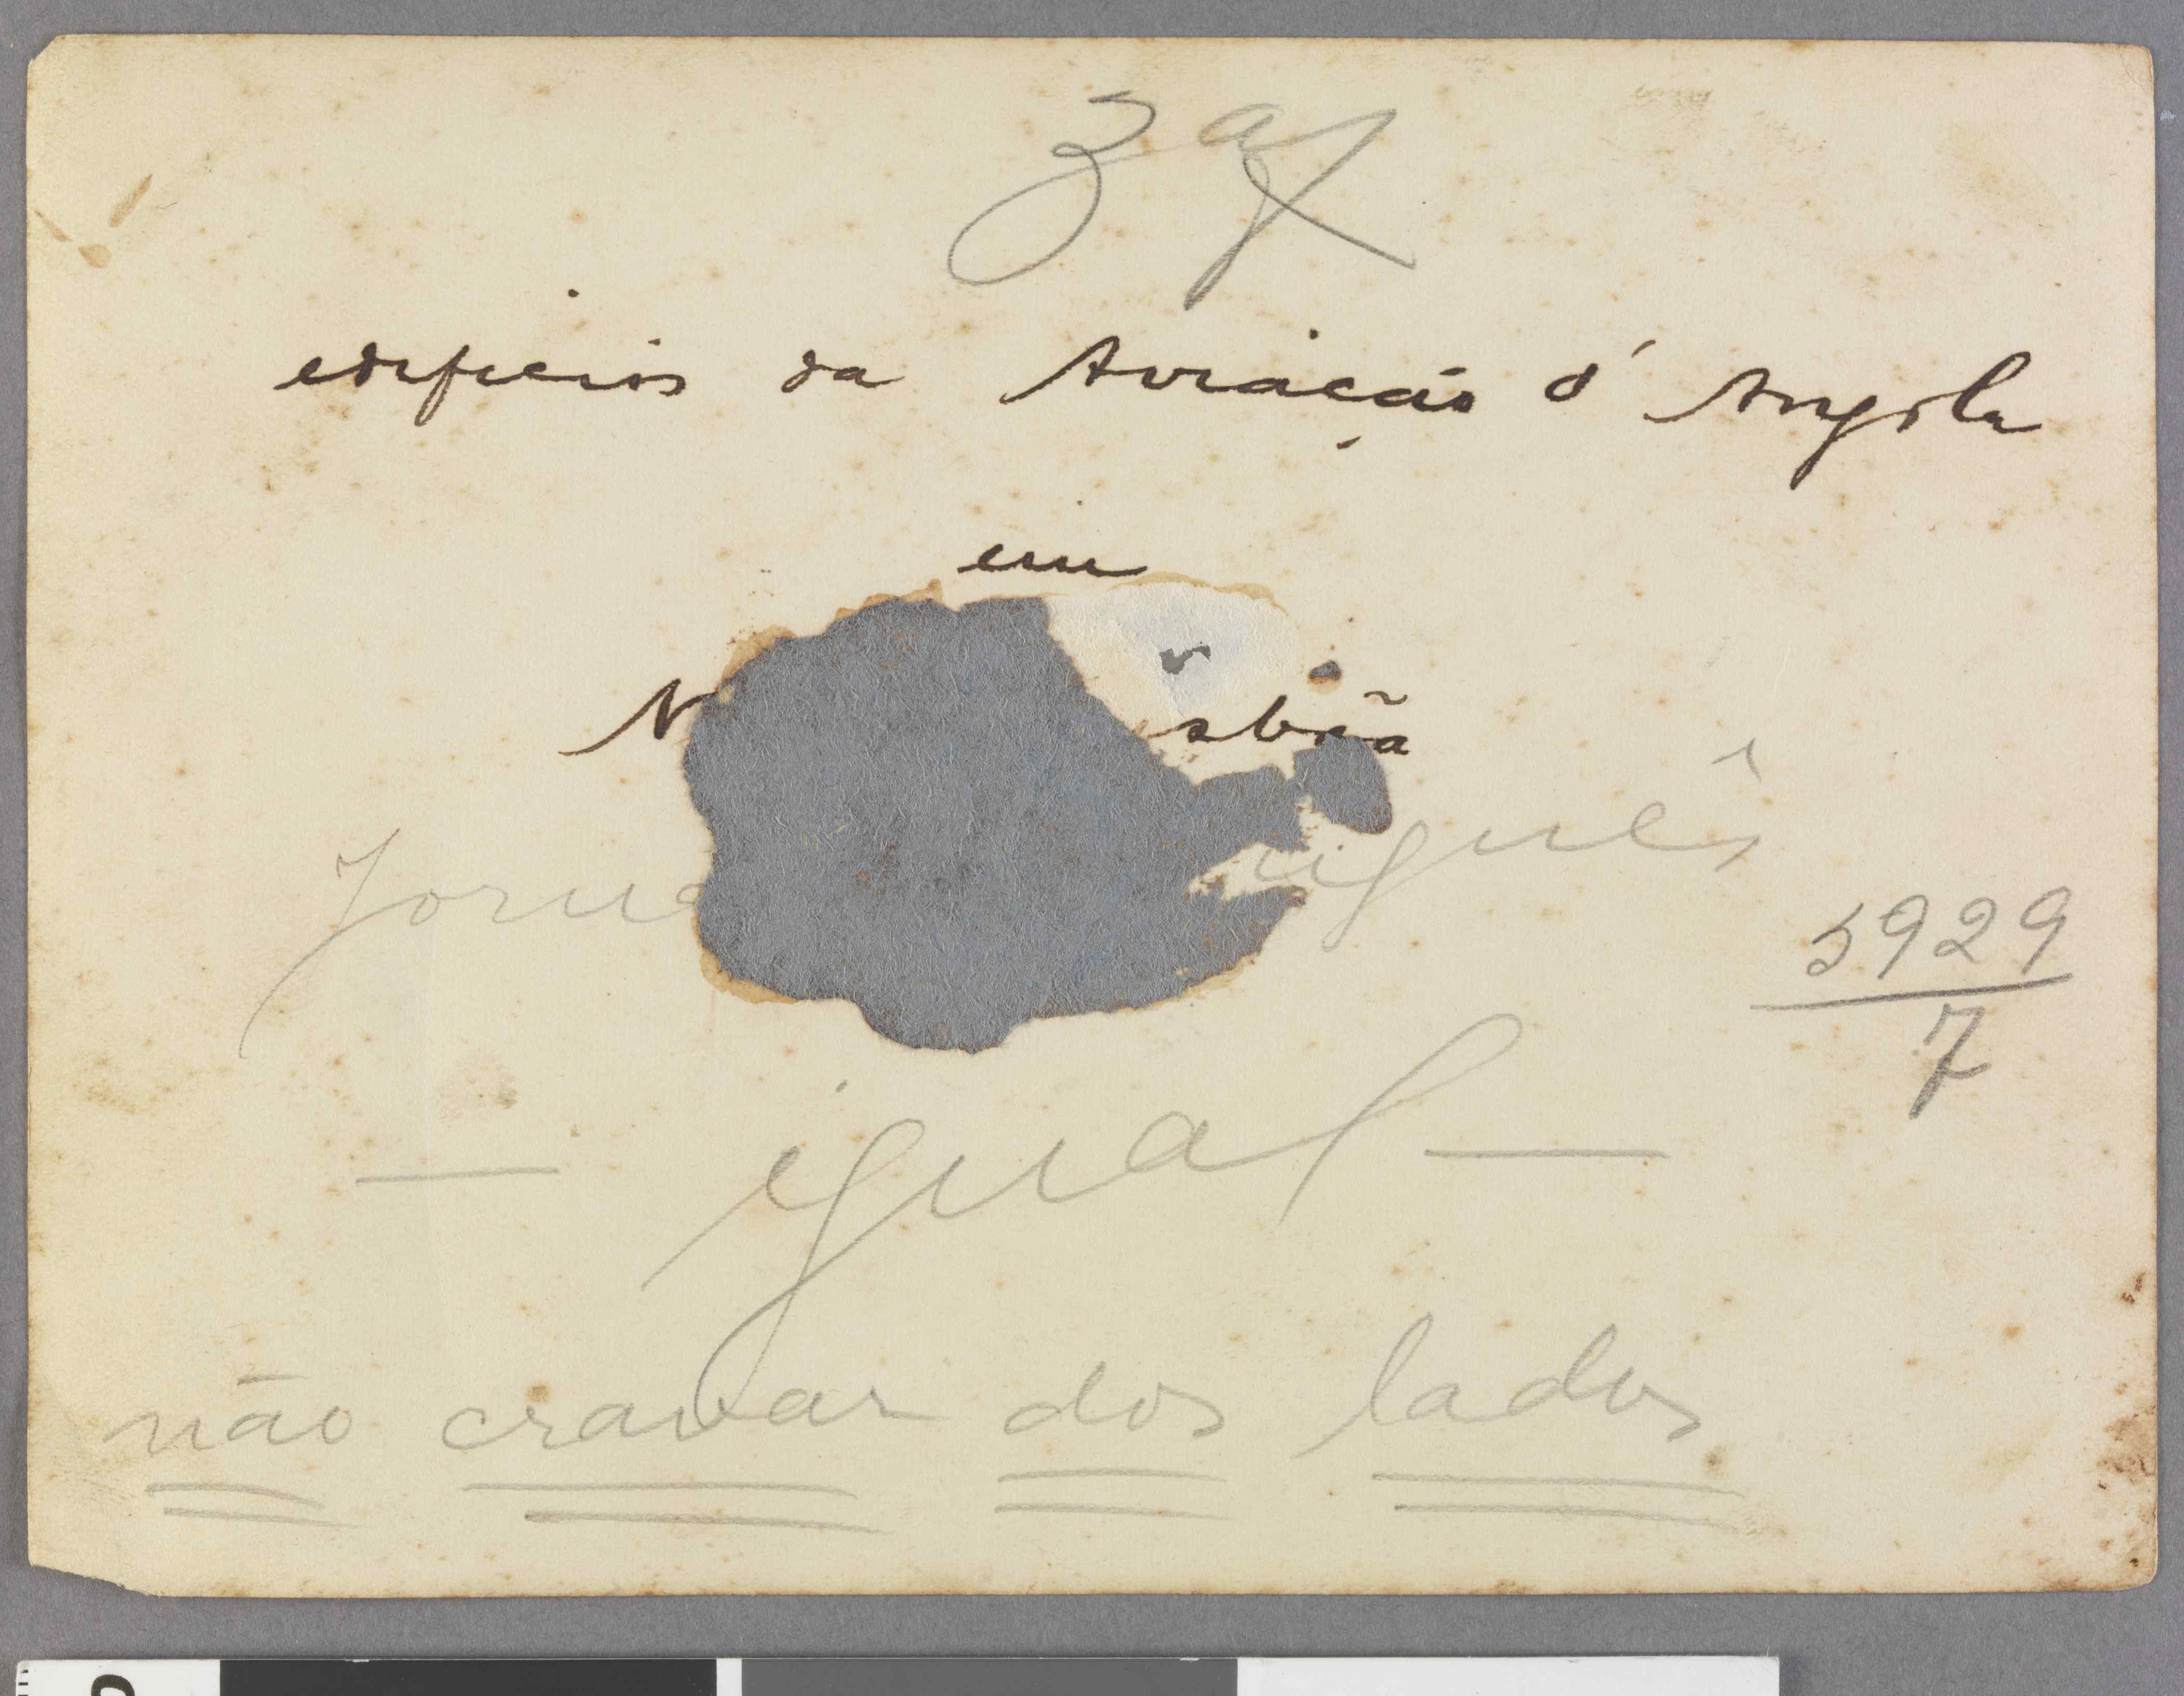 3ª
edificios da Aviação d'Angola
em
N sbôã
Jorna uguês
5929
7
— igual —
não cravar dos lados